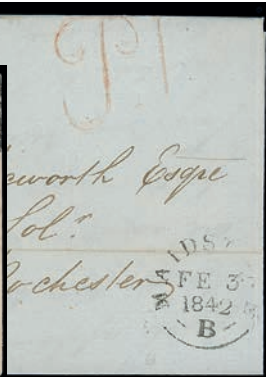 P1
eworth Esqre
Solr
Rochester
MAIDS
FE 3
1842
B